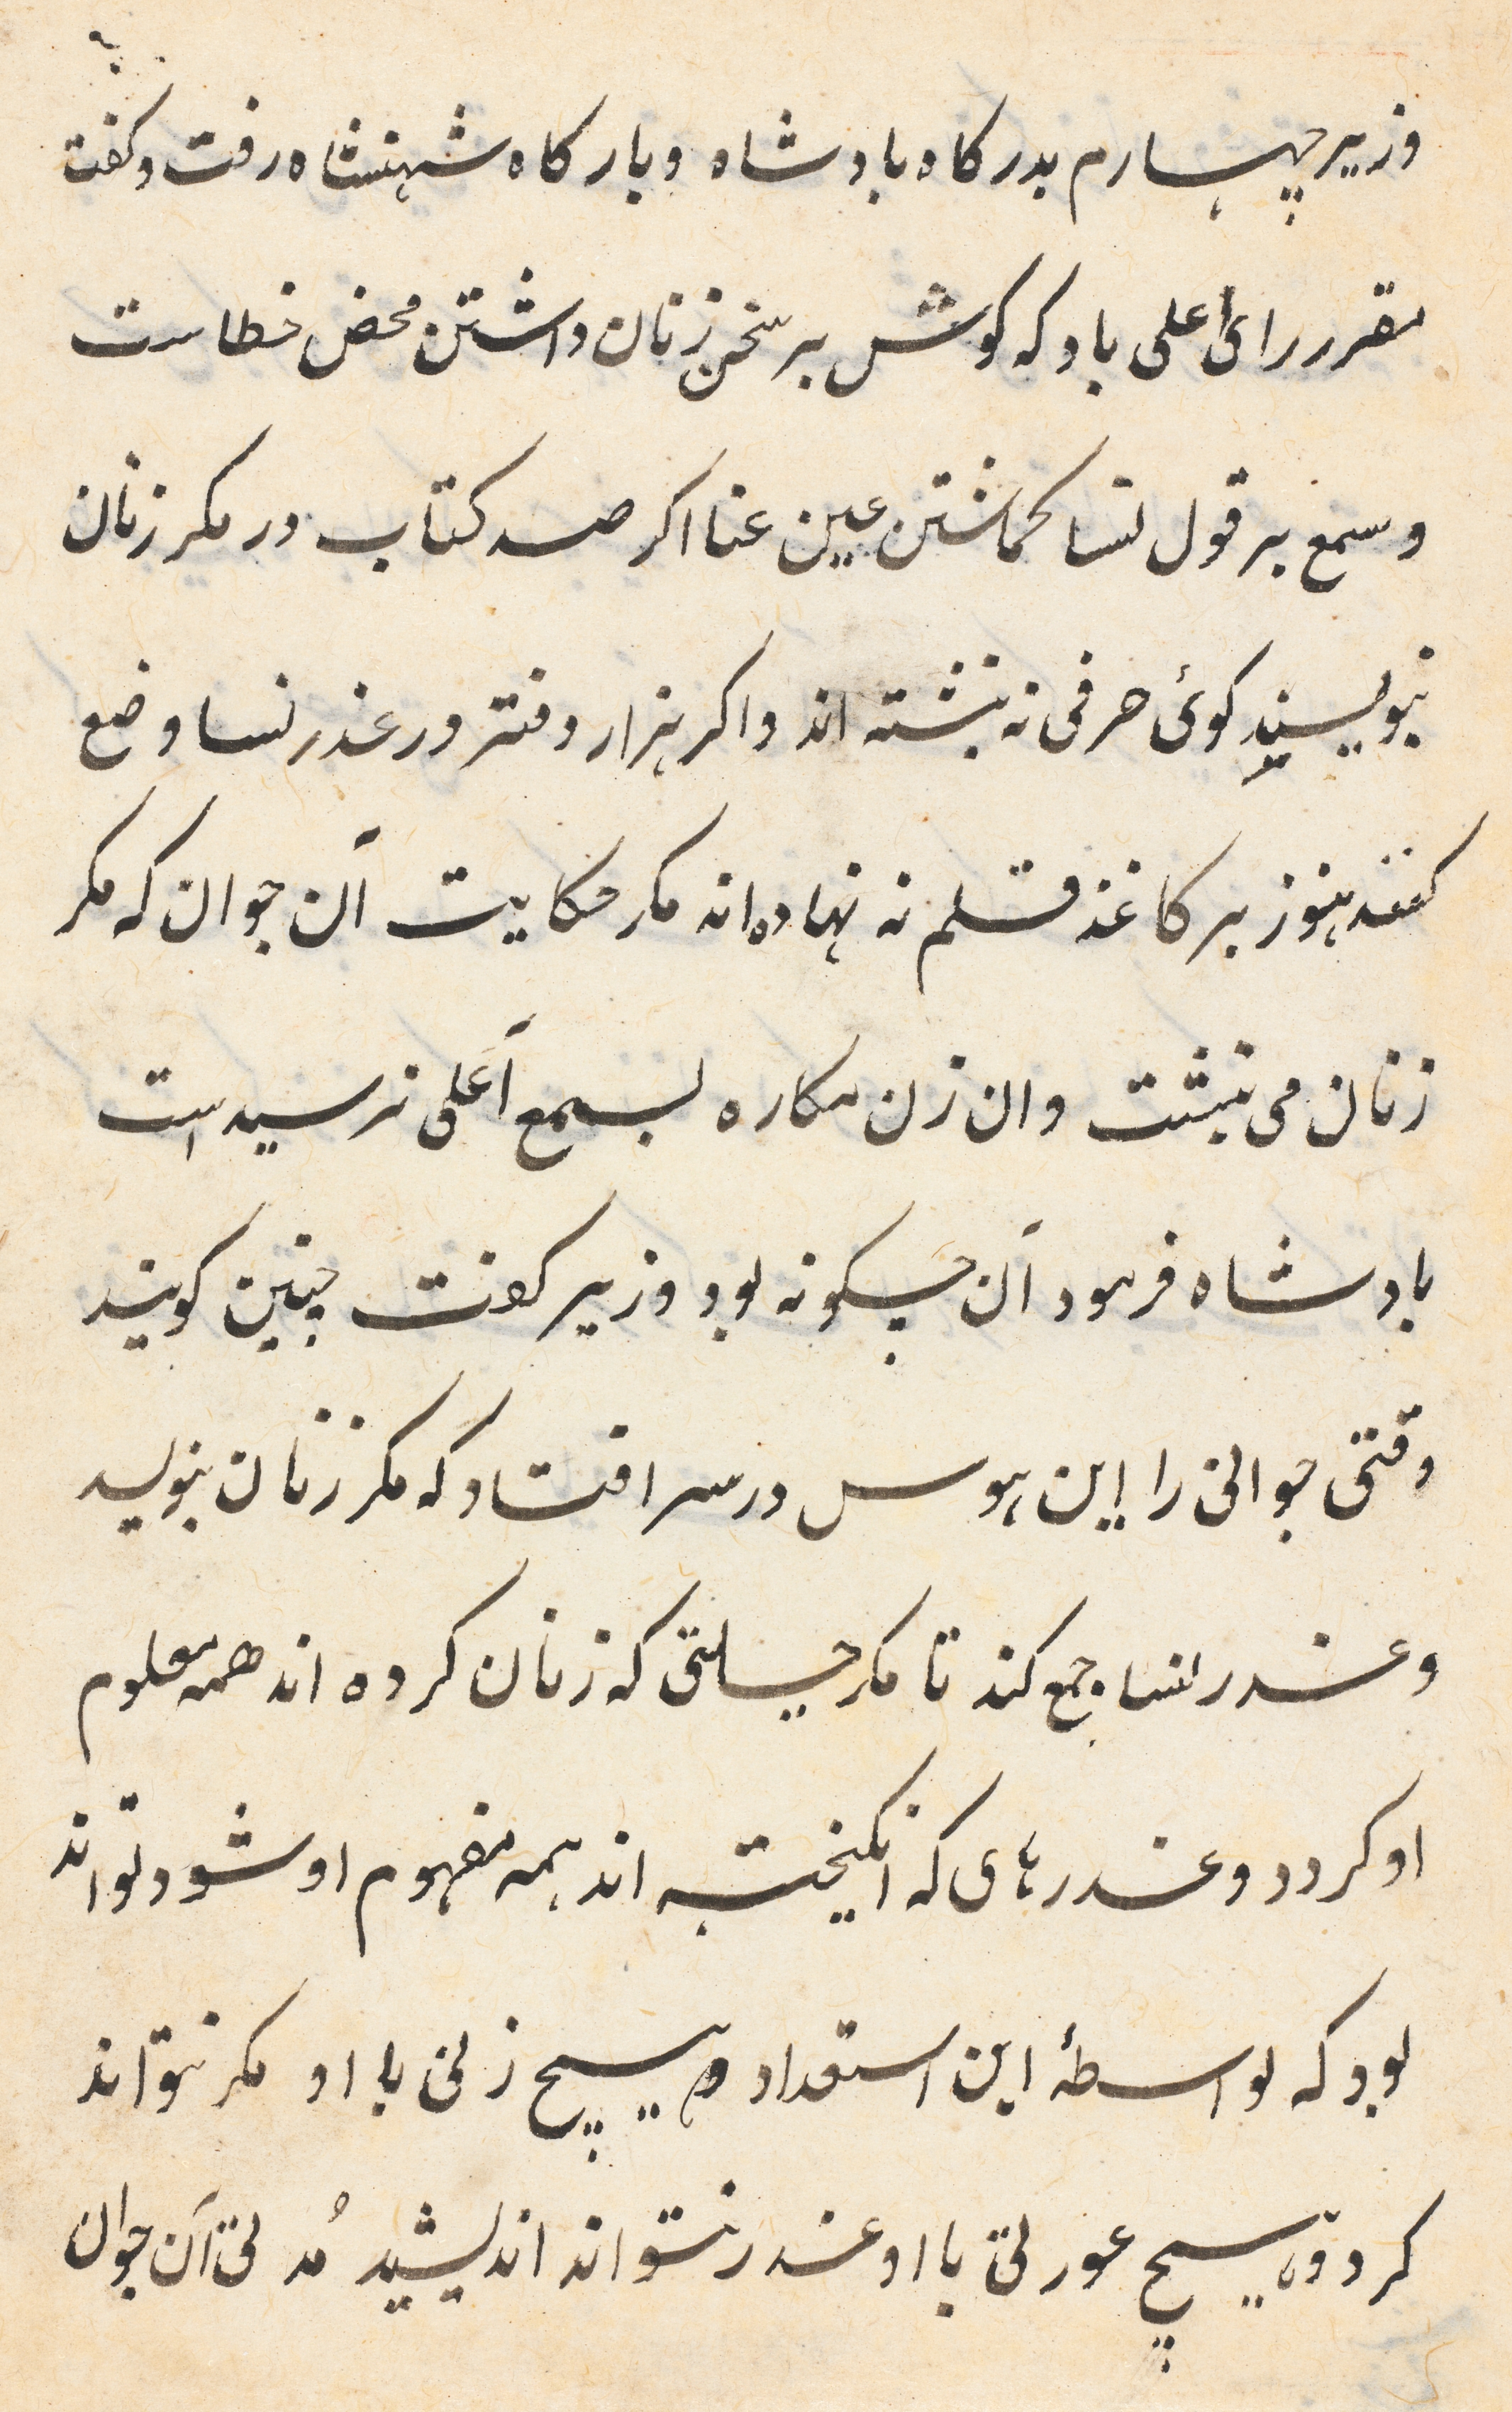 وزیر چهارم بدرکاه بادشاه و بارکاه شهنشاه رفت و کفت
مقرر رای اعلی باد که کوش بر سخن زنان داشتن محض خطاست
و سمع بر قول نسا کماشتن عین عنا اکر صد کتاب در مکر زنان
بنویسند کوئی حرفی نه نبشته اند و اکر هزار دفتر در غدر نسا وضع
کنند هنوز بر کاغذ قلم نه نهاده اند مکر حکایت آن جوان که مکر
زنان می نبشت وان زن مکاره بسمع آعلی نرسید است
بادشاه فرمود آن چکونه بود وزیر کفت چنین کویند
وقتی جوانی را این هوس در سر افتاد که مکر زنان بنویسد
و غدر نسا جمع کند تا مکر حیلتی که زنان کرده اند همه معلوم
او کردد و غدرهای که انکیخته اند همه مفهوم او شود تواند
بود که بواسطۀ این استعداد هیچ زنی با او مکر نتواند
کرد و هیچ عورتی با او غدر نتواند اندیشید مُدتی آن جوان